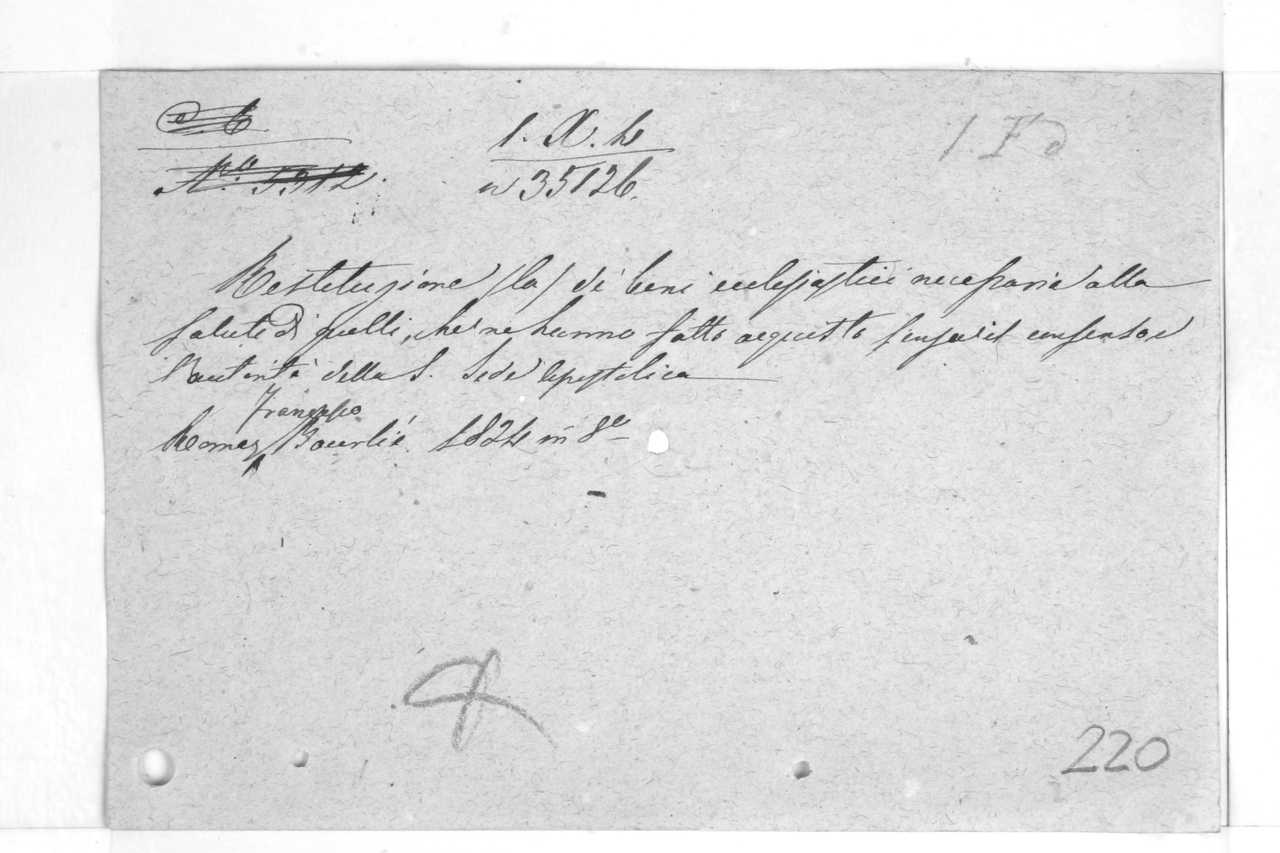 1. X. h
1 F d
N.º 5312
n 35126.
Restituzione (la) di beni ecclesiastici necessaria alla
salute di quelli, che ne hanno fatto acquisto senza il consenso, e
l'autorità della S. Sede Apostolica
Francesco
Roma, Bourliè. 1824 in 8º
220